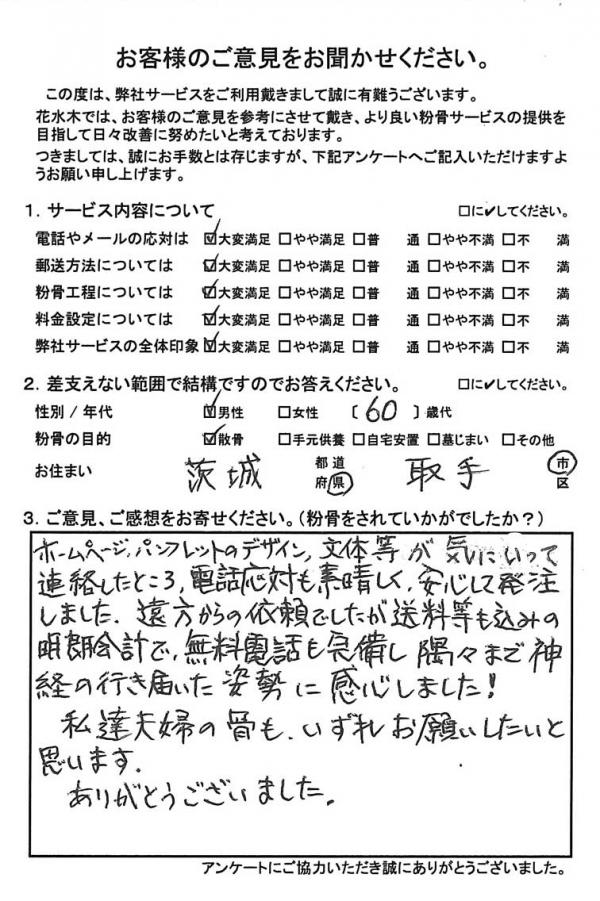 お客様のご意見をお聞かせください。
この度は、弊社サービスをご利用戴きまして誠に有難うございます。
花水木では、お客様のご意見を参考にさせて戴き、より良い粉骨サービスの提供を
目指して日々改善に努めたいと考えております。
つきましては、誠にお手数とは存じますが、下記アンケートへご記入いただけますよ
うお願い申し上げます。
1．サービス内容について □に✔してください。
電話やメールの応対は ☑大変満足 □やや満足 □普 通 □やや不満 □不 満
郵送方法については ☑大変満足 □やや満足 □普 通 □やや不満 □不 満
粉骨工程については ☑大変満足 □やや満足 □普 通 □やや不満 □不 満
料金設定については ☑大変満足 □やや満足 □普 通 □やや不満 □不 満
弊社サービスの全体印象 ☑大変満足 □やや満足 □普 通 □やや不満 □不 満
2．差支えない範囲で結構ですのでお答えください。 □に✔してください。
性別 / 年代 ☑男性 □女性 〔 60 〕歳代
粉骨の目的 ☑散骨 □手元供養 □自宅安置 □墓じまい □その他
お住まい 茨城 都道府県 取手 市区
3．ご意見、ご感想をお寄せください。（粉骨をされていかがでしたか？）
ホームページ, パンフレットのデザイン, 文体等が気にいって
連絡したところ, 電話応対も素晴しく, 安心して発注
しました. 遠方からの依頼でしたが送料等も込みの
明朗会計で, 無料電話も完備し 隅々まで神
経の行き届いた姿勢に感心しました!
私達夫婦の骨も、いずれお願いしたいと
思います.
ありがとうございました。
アンケートにご協力いただき誠にありがとうございました。